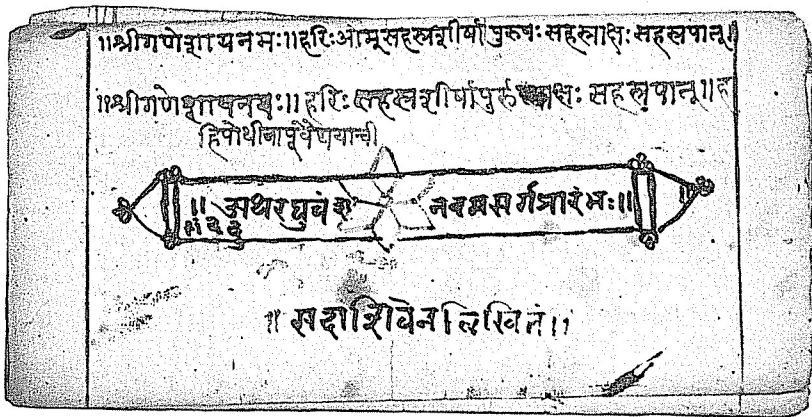 ॥श्रीगणेशायनमः॥हरिःओम्सहस्रशीर्षापुरुषःसहस्राक्षःसहस्रपात्॥
॥श्रीगणेशायनमः॥हरिः सहस्रशीर्षापुरु षः सहस्रपात्॥ह
हिपोथीबापूवैद्ययाची
॥अथरघुवंश नवमसर्गप्रारंभः॥
१२३
॥सदाशिवेनलिखितं॥